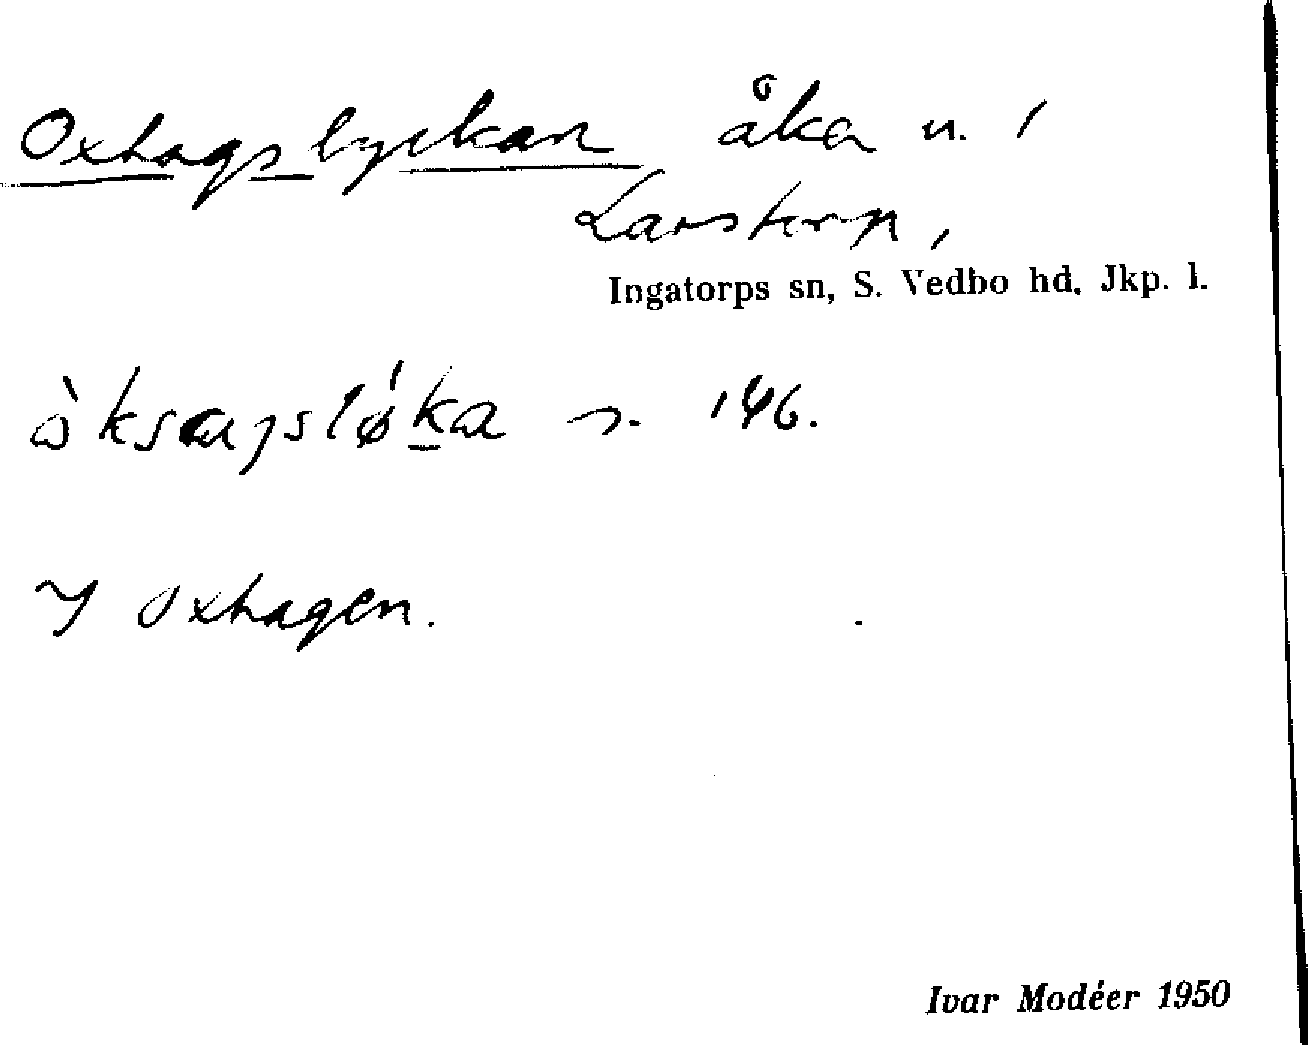 Oxhagslyckan åka u. i
Larstorp,
Ingatorps sn, S. Vedbo hd, Jkp. l.
s. 146.
I Oxhagen.
Ivar Modéer 1950